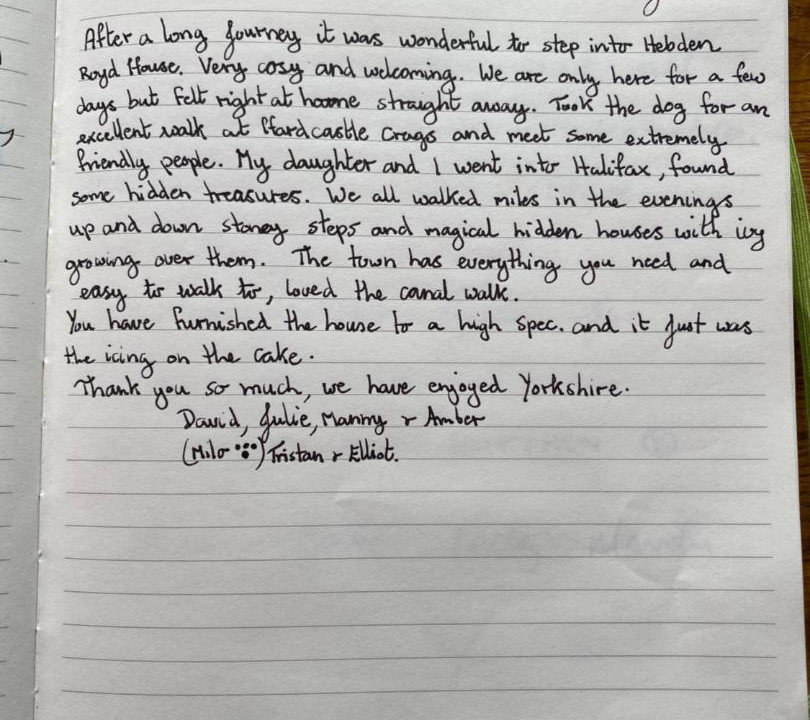 After a long journey it was wonderful to step into Hebden
Royd House. Very cosy and welcoming. We are only here for a few
days but felt right at hoome straight away. Took the dog for an
excellent walk at Hardcastle Crags and meet some extremely
friendly people. My daughter and I went into Halifax, found
some hidden treasures. We all walked miles in the evenings
up and down stoney steps and magical hidden houses with ivy
growing over them. The town has everything you need and
easy to walk to, loved the canal walk.
You have furnished the house to a high spec. and it just was
the icing on the cake.
Thank you so much, we have enjoyed Yorkshire.
David, Julie, Manny & Amber
(Milo) Tristan & Elliot.